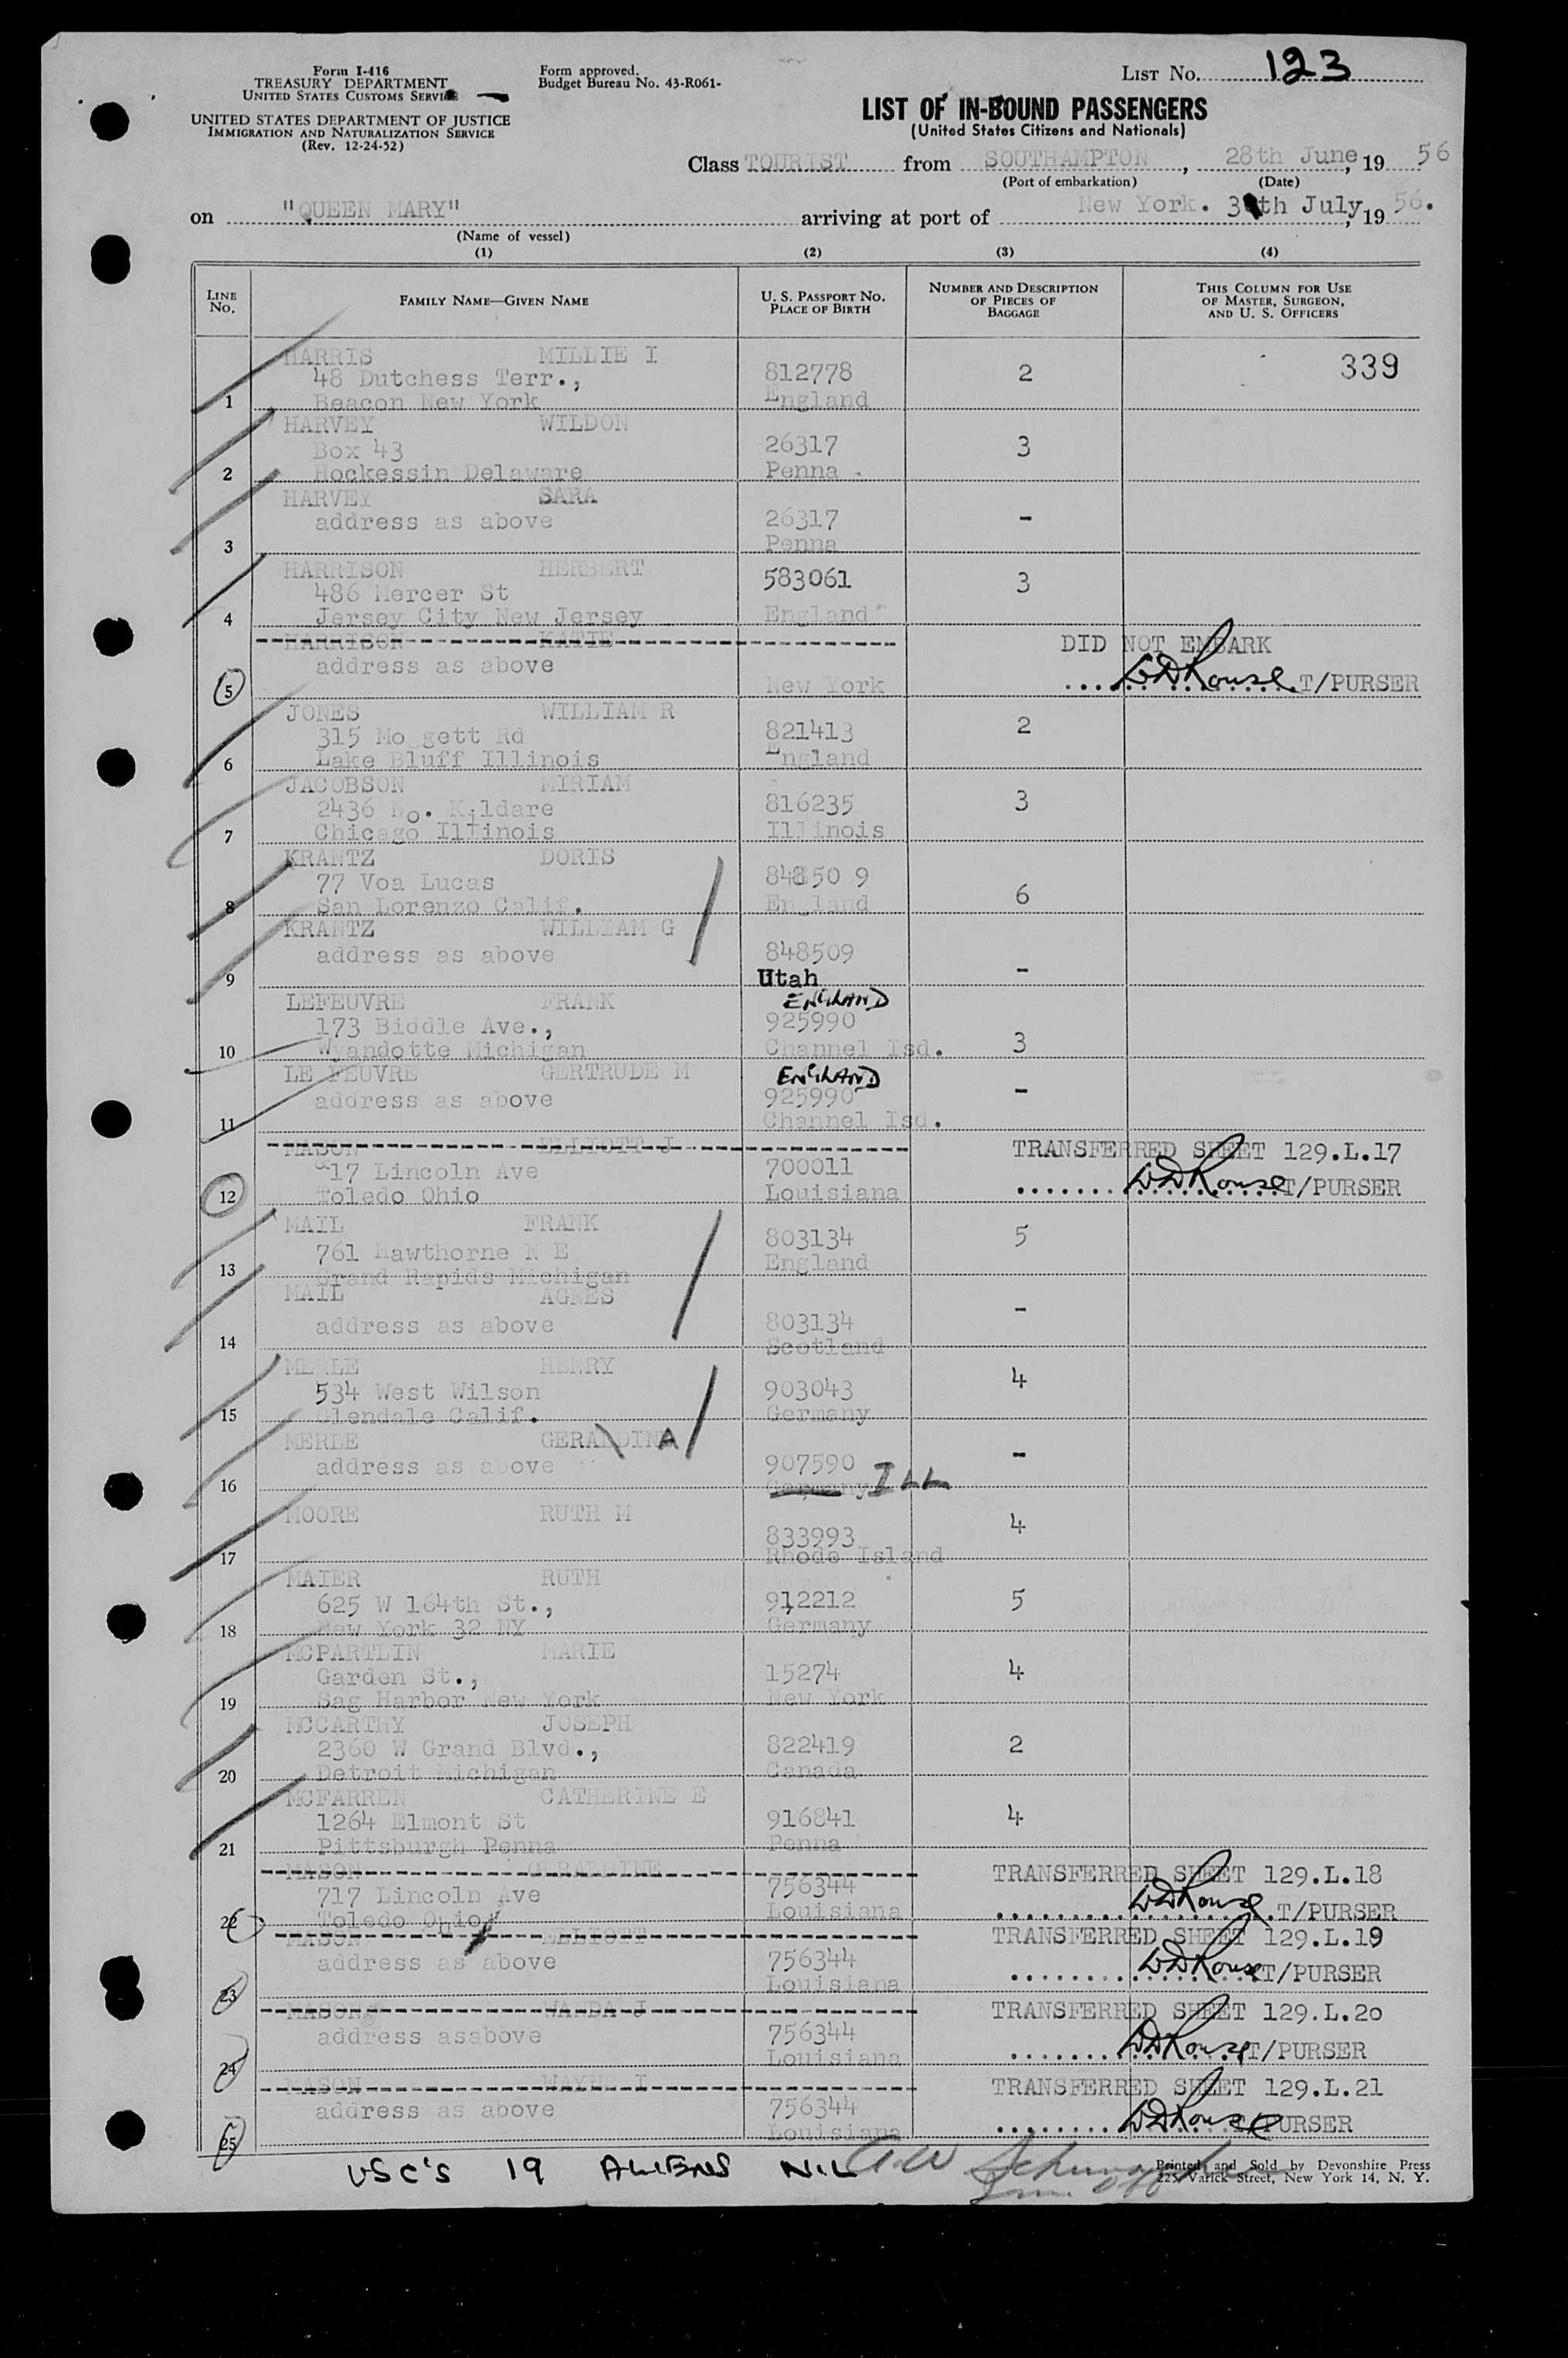 Form I-416
TREASURY DEPARTMENT
UNITED STATES CUSTOMS SERVICE
UNITED STATES DEPARTMENT OF JUSTICE
IMMIGRATION AND NATURALIZATION SERVICE
(Rev. 12-24-52)
Form approved.
Budget Bureau No. 43-R061-
LIST No. 123
LIST OF IN-BOUND PASSENGERS
(United States Citizens and Nationals)
Class TOURIST from SOUTHAMPTON, 28th June, 19 56
(Port of embarkation) (Date)
on "QUEEN MARY" arriving at port of New York. 3 th July, 19 56.
(Name of vessel)
(1) (2) (3) (4)
LINE No. FAMILY NAME—GIVEN NAME U. S. PASSPORT NO. PLACE OF BIRTH NUMBER AND DESCRIPTION OF PIECES OF BAGGAGE THIS COLUMN FOR USE OF MASTER, SURGEON, AND U. S. OFFICERS
HARRIS MILLIE I 339
48 Dutchess Terr., 812778 2
1 Beacon New York England
HARVEY WILDON
Box 43 26317 3
2 Hockessin Delaware Penna
HARVEY SARA
address as above 26317 -
3 Penna
HARRISON HERBERT 583061 3
486 Mercer St
4 Jersey City New Jersey England
HARRISON KATIE DID NOT EMBARK
address as above
5 New York T/PURSER
JONES WILLIAM R 2
315 Mo gett Rd 821413
6 Lake Bluff Illinois England
JACOBSON MIRIAM
2436 No. Kildare 816235 3
7 Chicago Illinois Illinois
KRANTZ DORIS
77 Voa Lucas 848509 6
8 San Lorenzo Calif. England
KRANTZ WILLIAM G
address as above 848509 -
9 Utah
LEFEUVRE FRANK ENGLAND
173 Biddle Ave., 925990
10 Wyandotte Michigan Channel Isd. 3
LE FEUVRE GERTRUDE M ENGLAND
address as above 925990 -
11 Channel Isd.
MASON ELLIOTT J TRANSFERRED SHEET 129.L.17
17 Lincoln Ave 700011
12 Toledo Ohio Louisiana T/PURSER
MAIL FRANK
761 Hawthorne N E 803134 5
13 Grand Rapids Michigan England
MAIL AGNES
address as above 803134 -
14 Scotland
MERLE HENRY
534 West Wilson 903043 4
15 Glendale Calif. Germany
MERLE GERALDINE A
address as above 907590 -
16 Germany ILL
MOORE RUTH M 4
833993
17 Rhode Island
MAIER RUTH
625 W 164th St., 912212 5
18 New York 32 NY Germany
MCPARTLIN MARIE
Garden St., 15274 4
19 Sag Harbor New York New York
MCCARTHY JOSEPH
2360 W Grand Blvd., 822419 2
20 Detroit Michigan Canada
MCFARREN CATHERINE E
1264 Elmont St 916841 4
21 Pittsburgh Penna Penna
MASON GERALDINE TRANSFERRED SHEET 129.L.18
717 Lincoln Ave 756344
22 Toledo Ohio Louisiana T/PURSER
MASON ELLIOTT TRANSFERRED SHEET 129.L.19
address as above 756344
23 Louisiana T/PURSER
MASON WANDA J TRANSFERRED SHEET 129.L.20
address asabove 756344
24 Louisiana T/PURSER
MASON WAYNE I TRANSFERRED SHEET 129.L.21
address as above 756344
25 Louisiana T/PURSER
USC'S 19 ALIENS NIL
Printed and Sold by Devonshire Press
225 Varick Street, New York 14, N. Y.